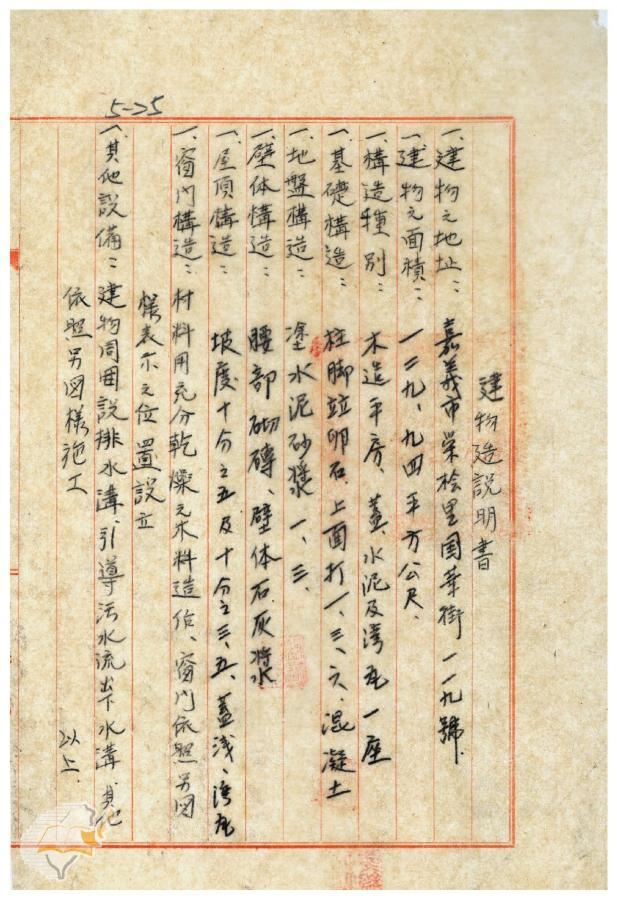 5→5
建物造説明書
一、建物之地址：嘉義市栄桧里国華街一一九號
一、建物之面積：一二九、九四平方公尺、
一、構造種別：木造平房、蓋水泥及湾瓦一座
一、基礎構造：柱脚竝卵石、上面打一、三、六、混凝土
一、地盤構造：塗水泥砂漿一、三、
一、壁体構造：腰部砌磚、壁体石灰漿
一、屋頂構造：坡度十分之五及十分之三、五、蓋浅、湾瓦
一、窗門構造：材料用充分乾燥之木料造作、窗門依照另図
様表示之位置設立
一、其他説備：建物周囲説排水溝、引導污水流出下水溝、其他
依照另図様施工
以上